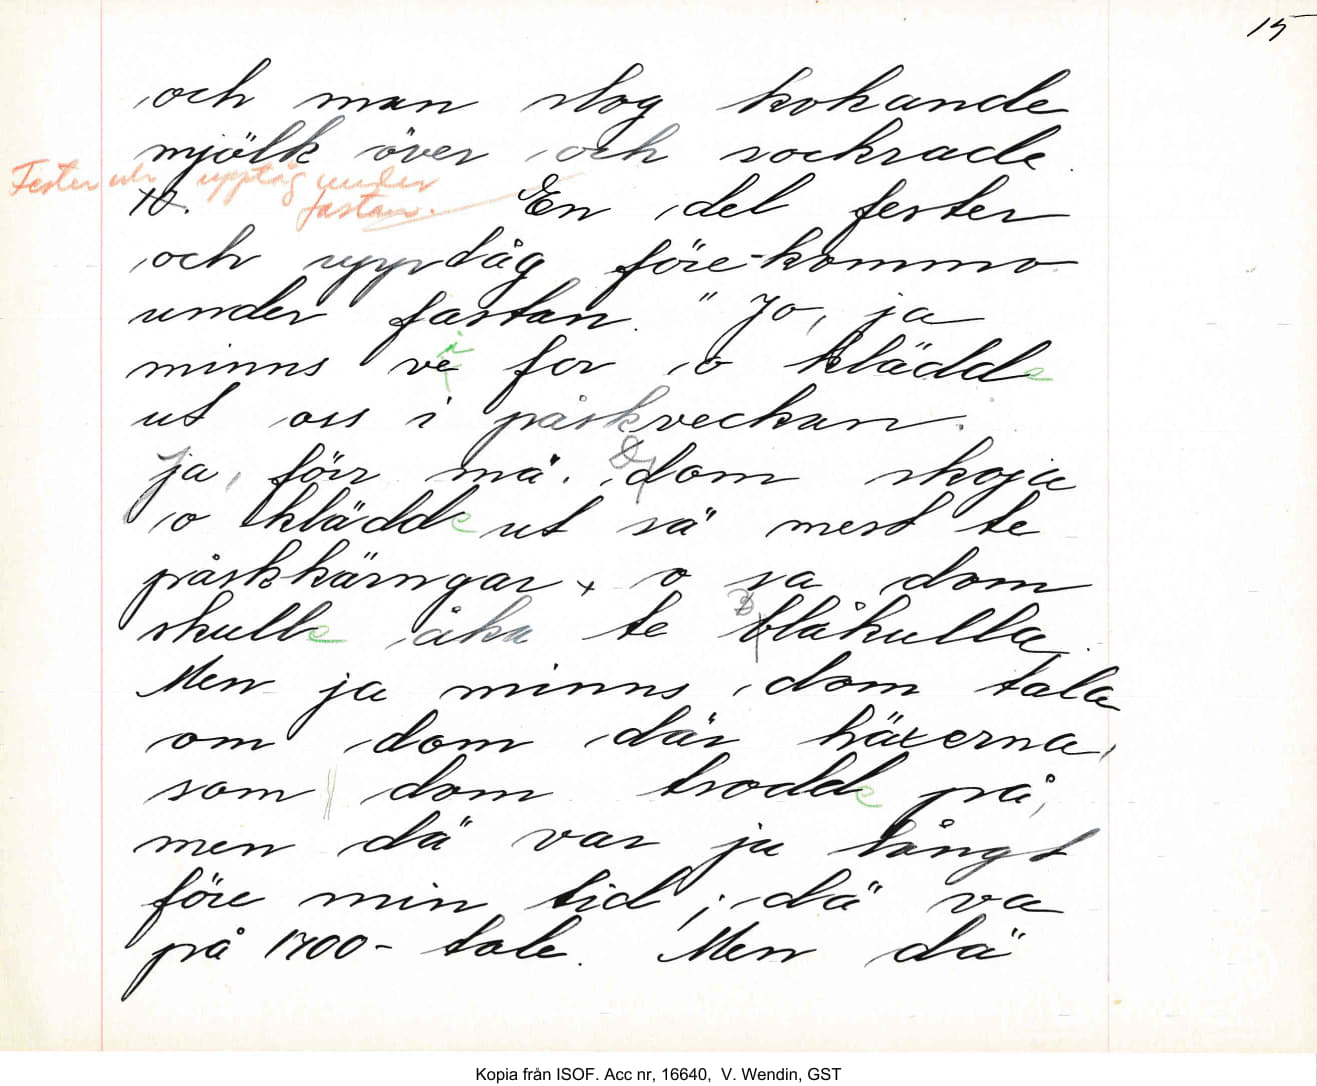 15
och man slog kokande
mjölk över och sockrade.
Fester och upptåg under
fastan.
10. En del fester
och upptåg före-kommo
under fastan. " Jo, ja
minns vi for o klädde
ut oss i påskveckan.
Ja, förr må. Dom skoja
o klädde ut sä mest te
påskkärngar, o sa dom
skulle åka te Blåkulla.
Men ja minns dom tala
om dom där häxerna,
som dom trodde på,
men dä var ju långt
före min tid; dä va
på 1700-tale. Men dä
Kopia från ISOF. Acc nr, 16640, V. Wendin, GST